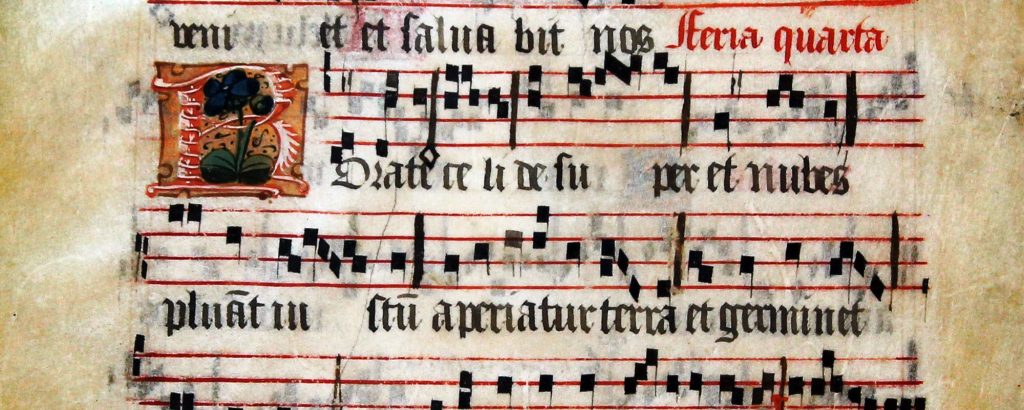 veni et et salua bit nos Feria quarta
Orate ce li de su per et nubes
pluāt iu stū aperiatur terra et germinet